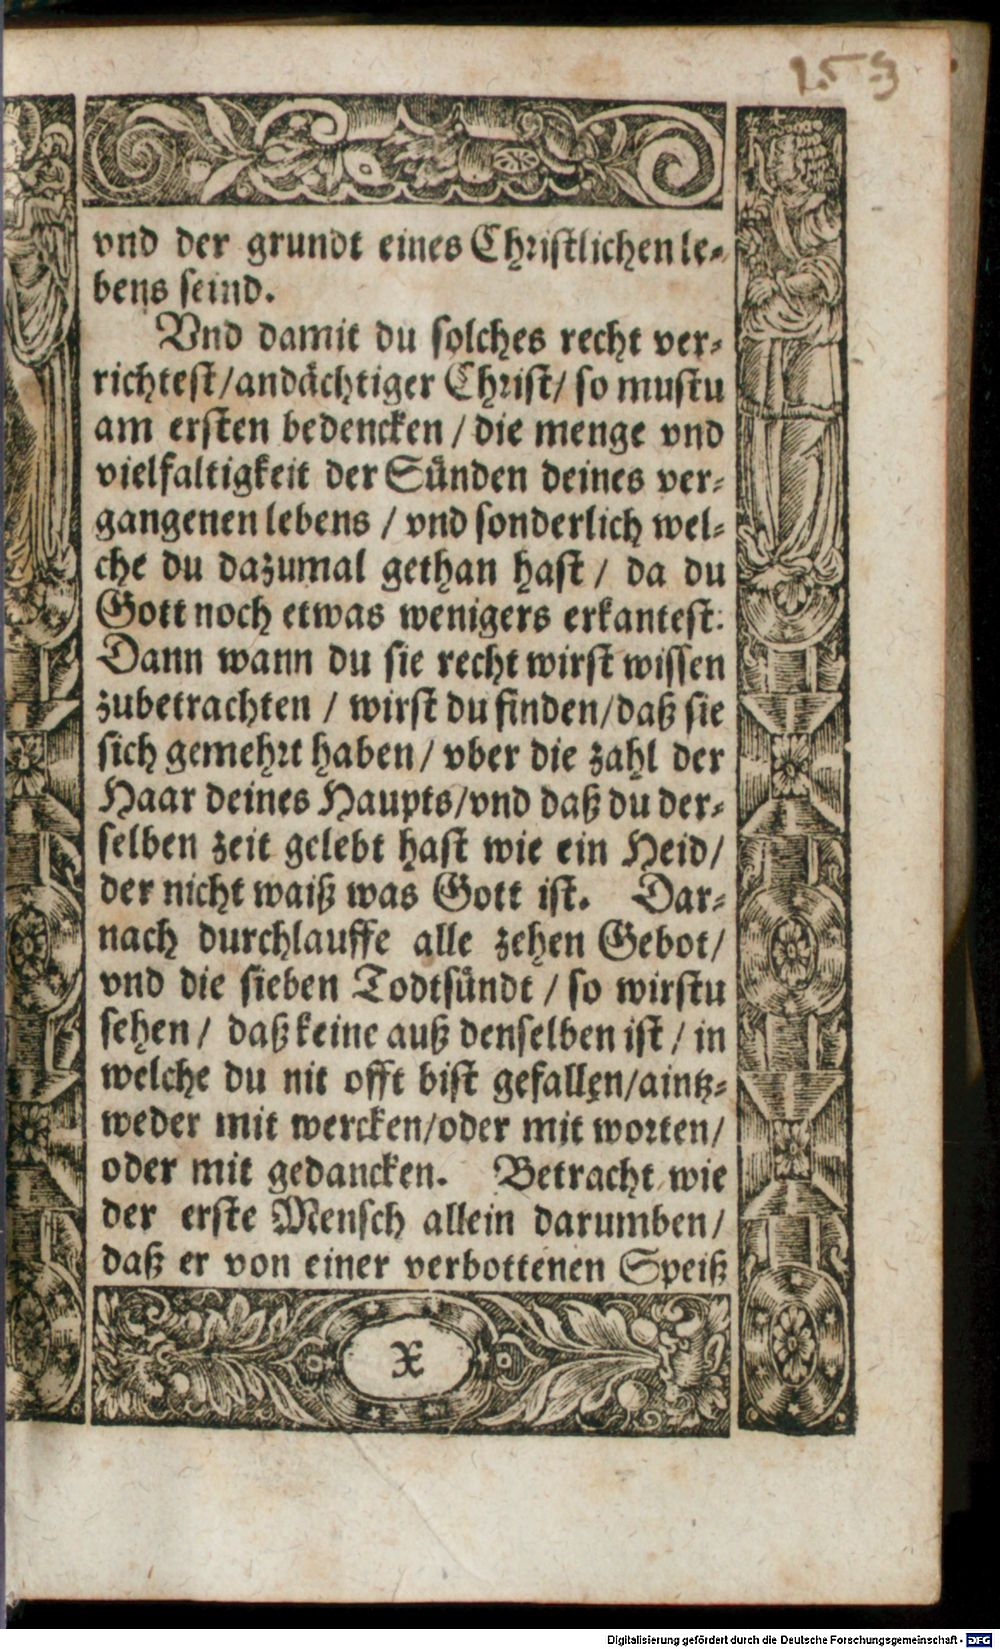 153
vnd der grundt eines Christlichen le-
bens seind.
Vnd damit du solches recht ver-
richtest/andächtiger Christ/ so mustu
am ersten bedencken / die menge vnd
vielfaltigkeit der Sünden deines ver-
gangenen lebens / vnd sonderlich wel-
che du dazumal gethan hast / da du
Gott noch etwas wenigers erkantest:
Dann wann du sie recht wirst wissen
zubetrachten / wirst du finden/daß sie
sich gemehrt haben/ vber die zahl der
Haar deines Haupts/vnd daß du der-
selben zeit gelebt hast wie ein Heid/
der nicht waiß was Gott ist. Dar-
nach durchlauffe alle zehen Gebot/
vnd die sieben Todtsündt / so wirstu
sehen / daß keine auß denselben ist / in
welche du nit offt bist gefallen/aintz-
weder mit wercken/oder mit worten/
oder mit gedancken. Betracht wie
der erste Mensch allein darumben/
daß er von einer verbottenen Speiß
X
Digitalisierung gefördert durch die Deutsche Forschungsgemeinschaft - DFG